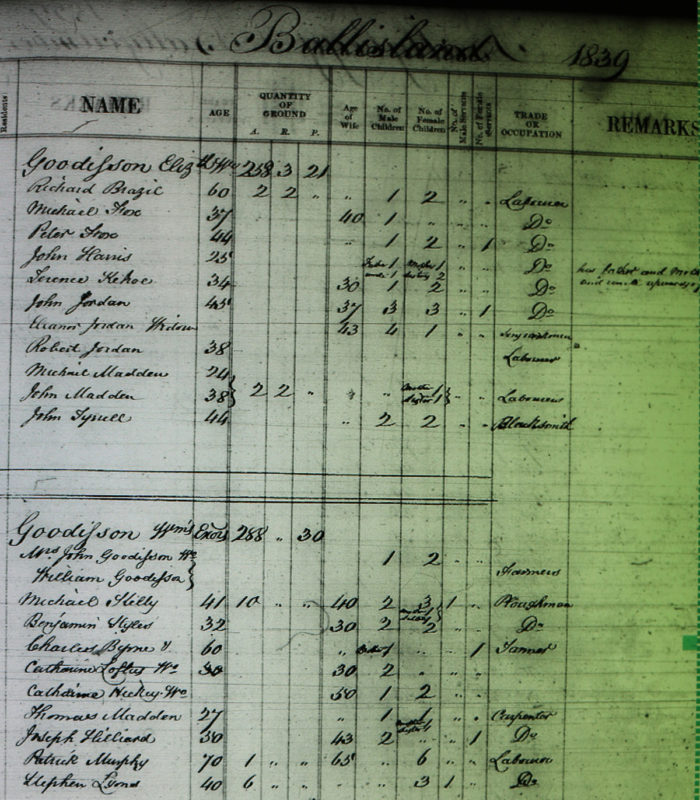 Ballisland 1839
Residents NAME AGE QUANTITY OF GROUND A. R. P. Age of Wife No. of Male Children No. of Female Children No. of Male Servants No. of Female Servants TRADE OR OCCUPATION REMARKS
Goodisson Elizth Wo 258 3 21
Richard Brazil 60 2 2 " " 1 2 " " Labourer
Michael Fox 37 40 1 " " " Do
Peter Fox 44 " 1 2 " 1 Do
John Harris 25 1 Mother 1 " " Do his father and
uncle 1 2 and uncle
Terence Kehoe 34 30 1 2 " " Do
John Jordan 45 37 3 3 " 1 Do
Eleanor Jordan Widow 43 4 1 " "
Robert Jordan 38 Labourer
Michael Madden 24
John Madden 38 2 2 " " " Mother 1 Sister 1 " " Labourers
John Tyrell 44 " 2 2 " " Blacksmith
Goodisson Wm's Exors 288 " 30
Mrs John Goodisson Wo 1 2 " "
William Goodisson Farmers
Michael 41 10 " " 40 2 3 1 " Ploughman
Benjamin 32 30 2 2 " " Do
Charles Byrne 60 " 1 " " 1
Catharine Loftus Wo 30 30 2 " " "
Catharine Hickey Wo 50 1 2 " "
Thomas Madden 27 " 1 1 " " Carpenter
Joseph Hilliard 50 43 2 " " 1 Do
Patrick Murphy 70 1 " " 65 " 6 " " Labourer
Stephen Lyons 40 6 " " " " 3 1 " Do